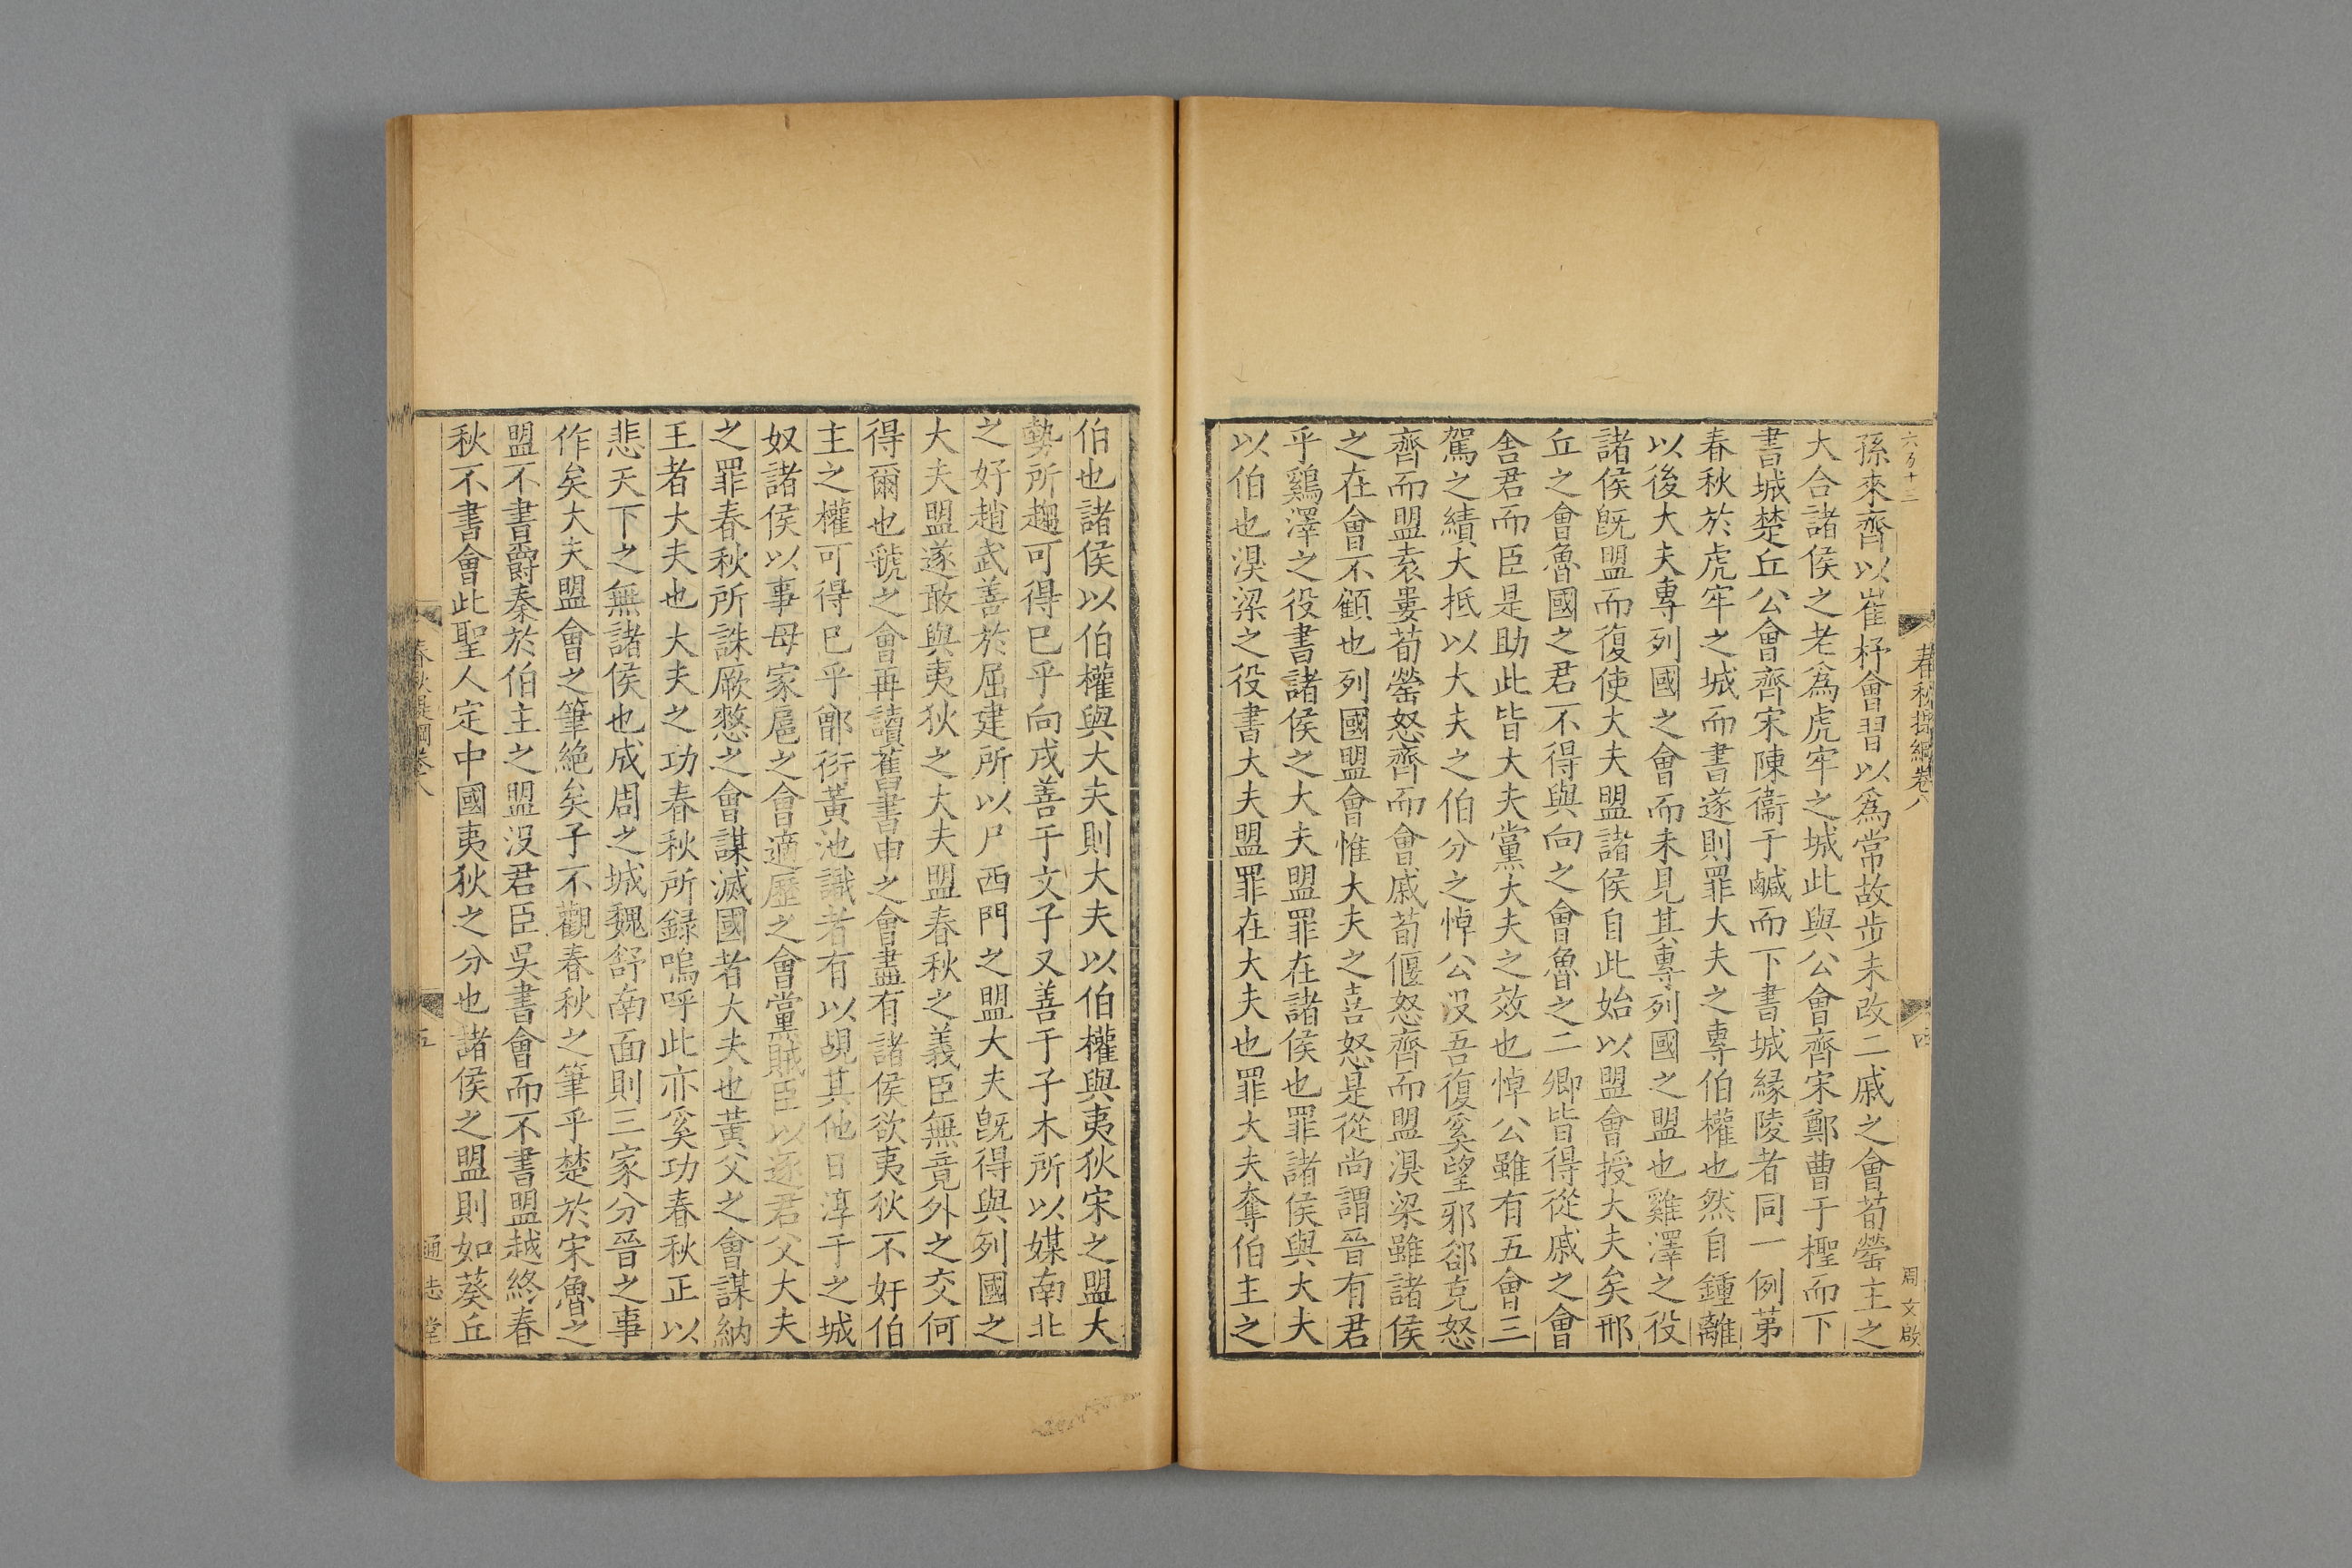 六万十三
春秋提綱卷八
四
周文啟
孫來齊以崔杼會習以爲常故步未改二戚之會荀罃主之
大合諸侯之老爲虎牢之城此與公會齊宋鄭曹于檉而下
書城楚丘公會齊宋陳衞于鹹而下書城縁陵者同一例苐
春秋於虎牢之城而書遂則罪大夫之專伯權也然自鍾離
以後大夫專列國之會而未見其專列國之盟也雞澤之役
諸侯旣盟而復使大夫盟諸侯自此始以盟會授大夫矣邢
丘之會魯國之君不得與向之會魯之二卿皆得從戚之會
舍君而臣是助此皆大夫黨大夫之效也悼公雖有五會三
駕之績大抵以大夫之伯分之悼公没吾復奚望邪郤克怒
齊而盟袁婁荀罃怒齊而會戚荀偃怒齊而盟湨梁雖諸侯
之在會不顧也列國盟會惟大夫之喜怒是從尚謂晉有君
乎鷄澤之役書諸侯之大夫盟罪在諸侯也罪諸侯與大夫
以伯也湨梁之役書大夫盟罪在大夫也罪大夫奪伯主之
伯也諸侯以伯權與大夫則大夫以伯權與夷狄宋之盟大
勢所趨可得已乎向戌善于文子又善于子木所以媒南北
之好趙武善於屈建所以尸西門之盟大夫旣得與列國之
大夫盟遂敢與夷狄之大夫盟春秋之義臣無竟外之交何
得爾也虢之會再讀舊書申之會盡有諸侯欲夷狄不奸伯
主之權可得已乎鄫衍黃池識者有以覘其他日淳于之城
奴諸侯以事母家扈之會適歷之會黨賊臣以逐君父大夫
之罪春秋所誅厥憖之會謀滅國者大夫也黃父之會謀納
王者大夫也大夫之功春秋所録嗚呼此亦奚功春秋正以
悲天下之無諸侯也成周之城魏舒南面則三家分晉之事
作矣大夫盟會之筆絶矣子不觀春秋之筆乎楚於宋魯之
盟不書爵秦於伯主之盟没君臣吳書會而不書盟越終春
秋不書會此聖人定中國夷狄之分也諸侯之盟則如葵丘
春秋提綱卷八
五
通志堂